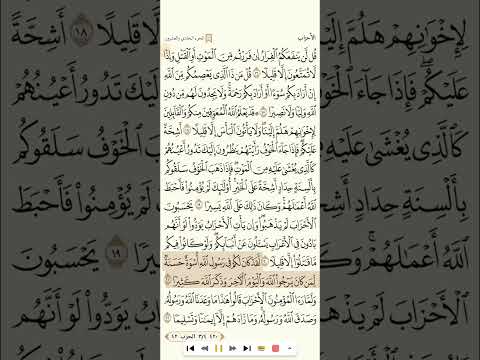 الأحزاب
الجزء الحادي والعشرون
قُل لَّن يَنفَعَكُمُ ٱلْفِرَارُ إِن فَرَرْتُم مِّنَ ٱلْمَوْتِ أَوِ ٱلْقَتْلِ وَإِذًا
لَّا تُمَتَّعُونَ إِلَّا قَلِيلًا ١٦ قُلْ مَن ذَا ٱلَّذِي يَعْصِمُكُم مِّنَ ٱللَّهِ
إِنْ أَرَادَ بِكُمْ سُوٓءًا أَوْ أَرَادَ بِكُمْ رَحْمَةً وَلَا يَجِدُونَ لَهُم مِّن دُونِ
ٱللَّهِ وَلِيًّا وَلَا نَصِيرًا ١٧ ۞ قَدْ يَعْلَمُ ٱللَّهُ ٱلْمُعَوِّقِينَ مِنكُمْ وَٱلْقَآئِلِينَ
لِإِخْوَٰنِهِمْ هَلُمَّ إِلَيْنَا وَلَا يَأْتُونَ ٱلْبَأْسَ إِلَّا قَلِيلًا ١٨ أَشِحَّةً
عَلَيْكُمْ فَإِذَا جَآءَ ٱلْخَوْفُ رَأَيْتَهُمْ يَنظُرُونَ إِلَيْكَ تَدُورُ أَعْيُنُهُمْ
كَٱلَّذِي يُغْشَىٰ عَلَيْهِ مِنَ ٱلْمَوْتِ فَإِذَا ذَهَبَ ٱلْخَوْفُ سَلَقُوكُم
بِأَلْسِنَةٍ حِدَادٍ أَشِحَّةً عَلَى ٱلْخَيْرِ أُو۟لَٰٓئِكَ لَمْ يُؤْمِنُوا۟ فَأَحْبَطَ
ٱللَّهُ أَعْمَٰلَهُمْ وَكَانَ ذَٰلِكَ عَلَى ٱللَّهِ يَسِيرًا ١٩ يَحْسَبُونَ
ٱلْأَحْزَابَ لَمْ يَذْهَبُوا۟ وَإِن يَأْتِ ٱلْأَحْزَابُ يَوَدُّوا۟ لَوْ أَنَّهُم
بَادُونَ فِي ٱلْأَعْرَابِ يَسْـَٔلُونَ عَنْ أَنۢبَآئِكُمْ وَلَوْ كَانُوا۟ فِيكُم
مَّا قَٰتَلُوٓا۟ إِلَّا قَلِيلًا ٢٠ لَّقَدْ كَانَ لَكُمْ فِي رَسُولِ ٱللَّهِ أُسْوَةٌ حَسَنَةٌ
لِّمَن كَانَ يَرْجُوا۟ ٱللَّهَ وَٱلْيَوْمَ ٱلْءَاخِرَ وَذَكَرَ ٱللَّهَ كَثِيرًا ٢١
وَلَمَّا رَءَا ٱلْمُؤْمِنُونَ ٱلْأَحْزَابَ قَالُوا۟ هَٰذَا مَا وَعَدَنَا ٱللَّهُ وَرَسُولُهُۥ
وَصَدَقَ ٱللَّهُ وَرَسُولُهُۥ وَمَا زَادَهُمْ إِلَّآ إِيمَٰنًا وَتَسْلِيمًا ٢٢
٤٢٠ ٣/٤ الحزب ٤٢
لِإِخْوَٰنِهِمْ هَلُمَّ إِلَ
قَلِيلًا ١٨ أَشِحَّةً
عَلَيْكُمْ فَإِذَا جَآءَ ٱلْخَوْ
لَيْكَ تَدُورُ أَعْيُنُهُمْ
كَٱلَّذِي يُغْشَىٰ عَلَيْهِ
ٱلْخَوْفُ سَلَقُوكُم
بِأَلْسِنَةٍ حِدَادٍ أَشِحَّ
لَمْ يُؤْمِنُوا۟ فَأَحْبَطَ
ٱللَّهُ أَعْمَٰلَهُمْ وَكَ
يرًا ١٩ يَحْسَبُونَ
ٱلْأَحْزَابَ لَمْ يَذْ
يَوَدُّوا۟ لَوْ أَنَّهُم